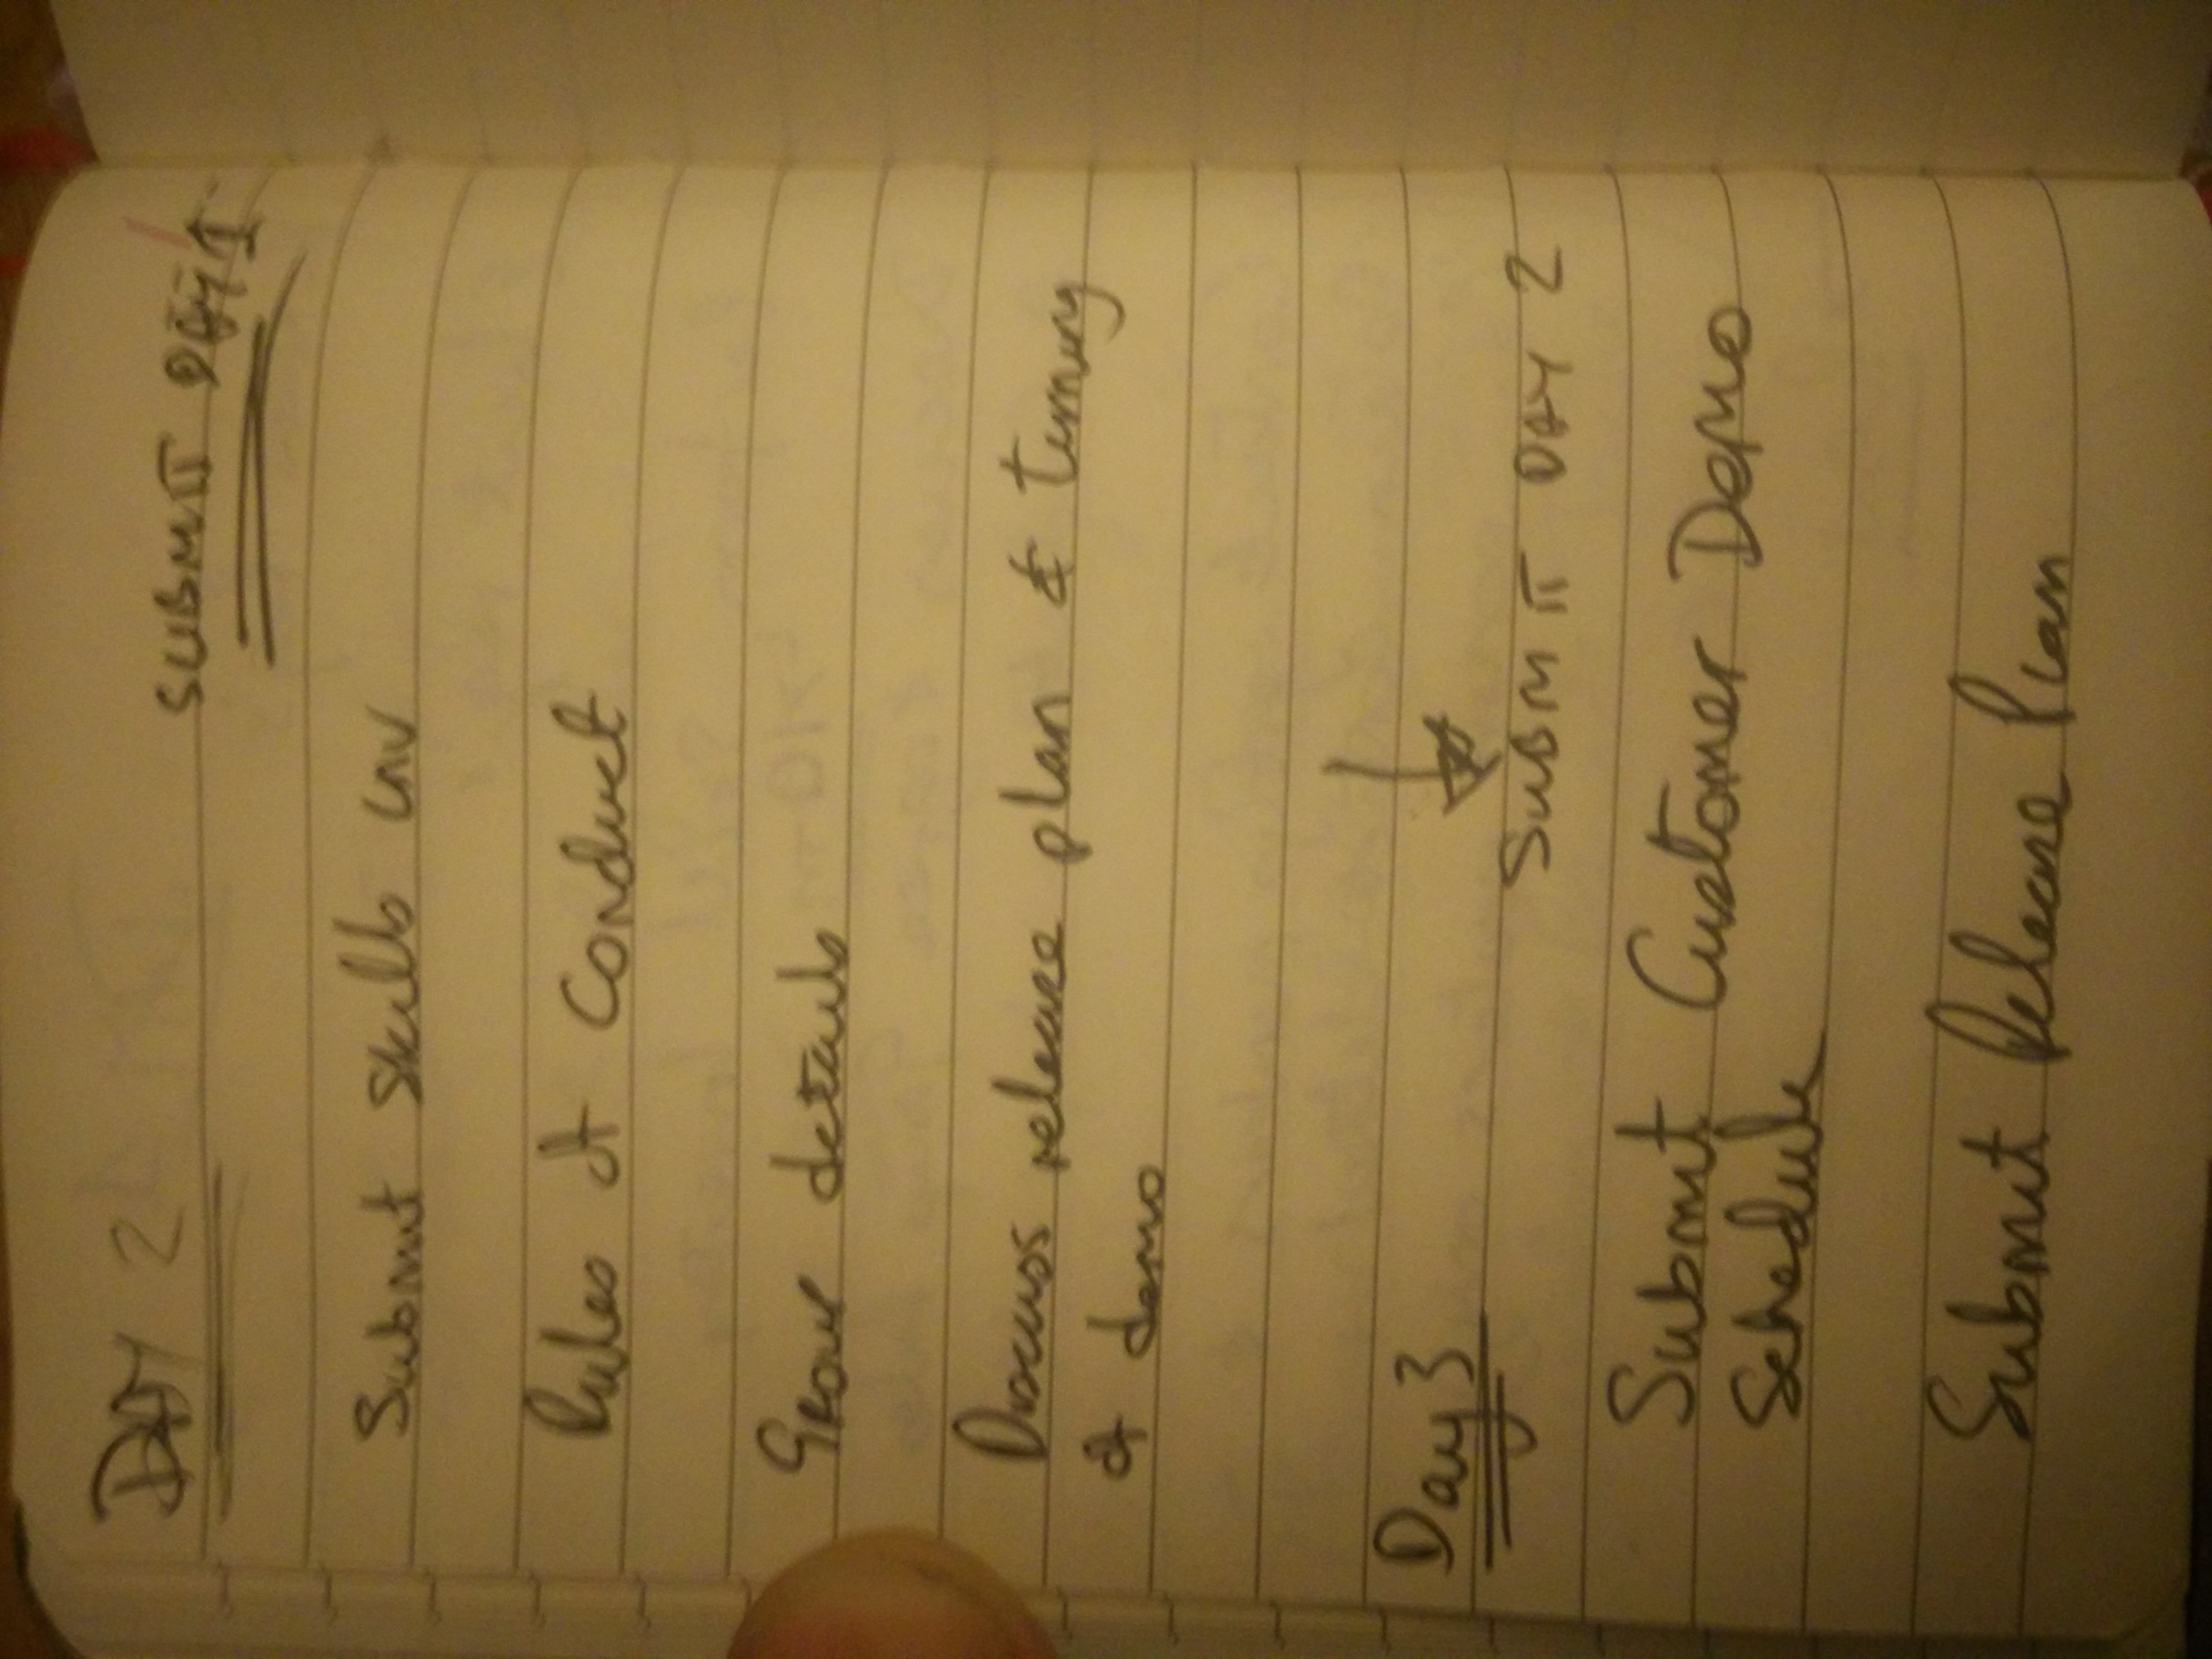 DAY 2
SUBMIT DAY 1
Submit skills inv
Rules of Conduct
Group details
Discuss release plan & timing
of demo
Day 3
SUBMIT DAY 2
Submit Customer Demo
Schedule
Submit Release Plan